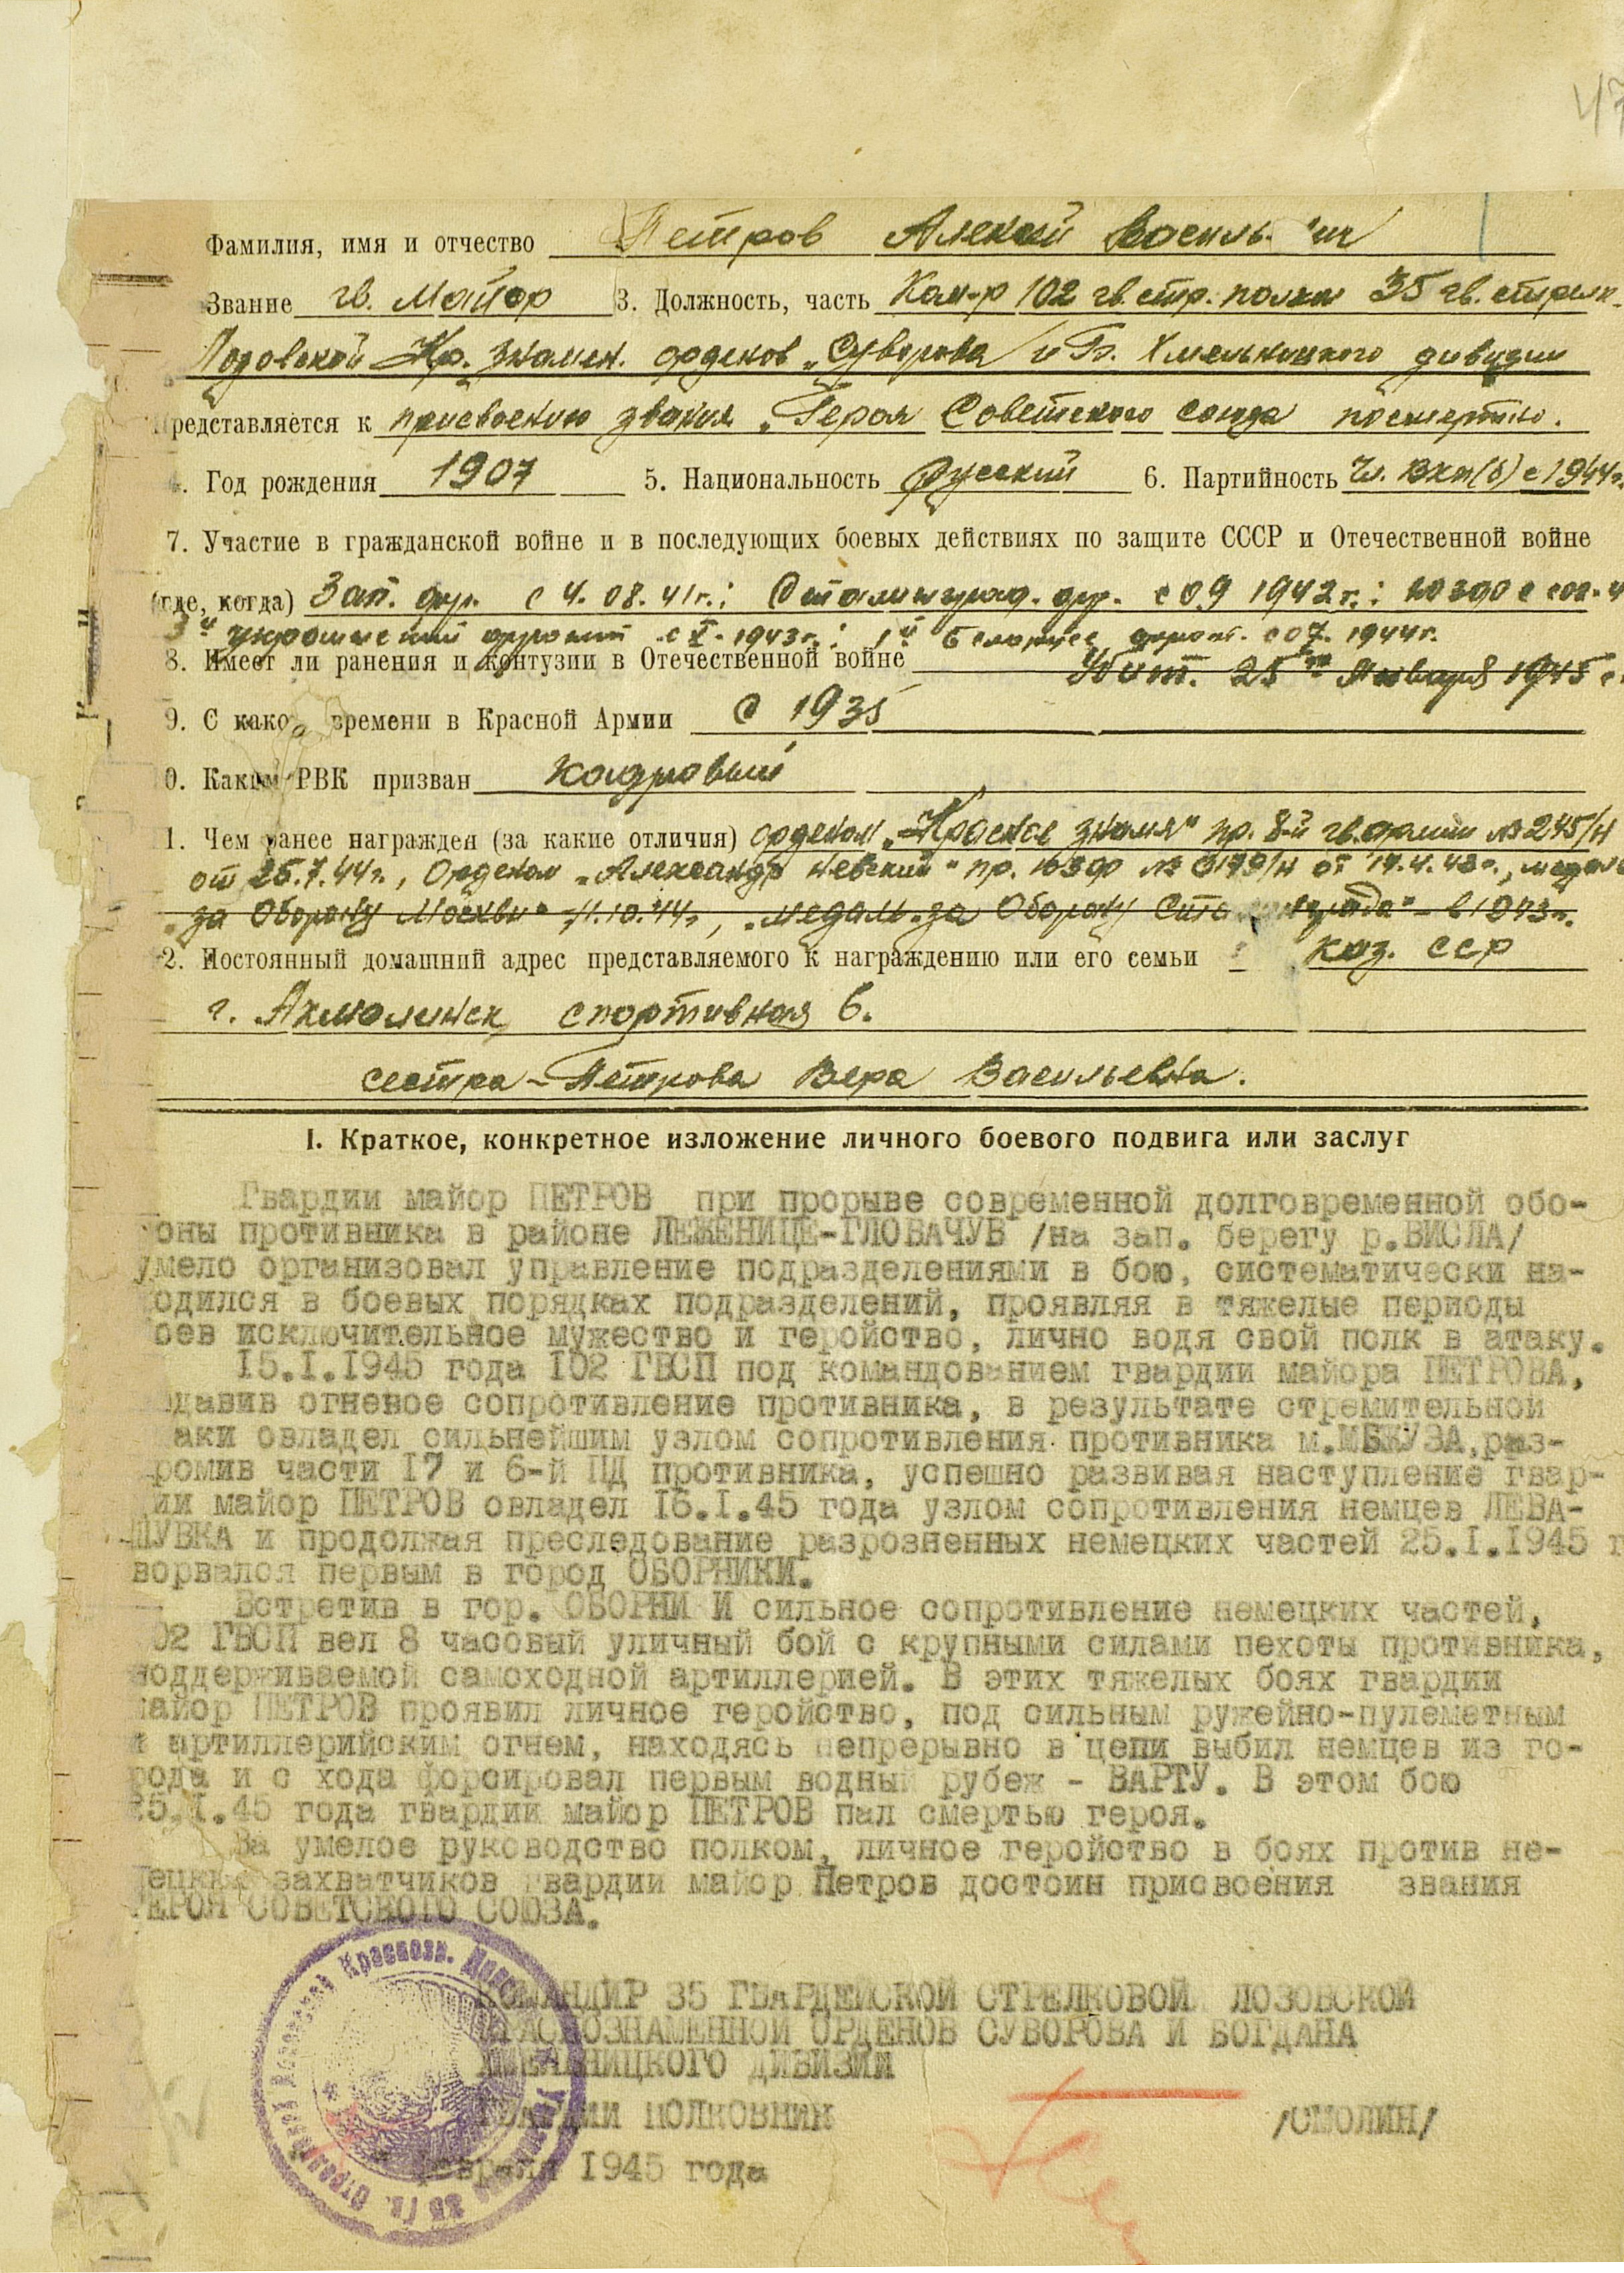 47
Фамилия, имя и отчество Петров Алексей Василь ич
Звание гв. Майор 3. Должность, часть Ком-р 102 гв. стр. полка 35 гв. стрелк.
Лозовской Кр. Знамен. орденов „Суворова и Б. Хмельницкого дивизии
Представляется к присвоению звания „Героя Советского Союза посмертно.
4. Год рождения 1907 5. Национальность русский 6. Партийность Чл. ВКП(б) с 1944г.
7. Участие в гражданской войне и в последующих боевых действиях по защите СССР и Отечественной войне
(где, когда) Зап. фр. с 4.08.41г.; Сталинград. фр. с 09 1942г.; ЮЗФО с
3й украинский фронт с X. 1943г.; 1й Белорусс фронт. с 07. 1944г.
8. Имеет ли ранения и контузии в Отечественной войне Убит. 25го Января 1945 г.
9. С како времени в Красной Армии с 1935
0. Каким РВК призван Кадровый
1. Чем ранее награжден (за какие отличия) орденом „Красное знамя" пр. 8-й гв. армии № 245/н
от 25.7.44г., Орденом „Александр Невский" пр. ЮЗФО № 0179/н от 17.4.43г., медаль
за Оборону Москвы" 11.10.44г, „медаль за Оборону Ста града" - в 1943г.
2. Постоянный домашний адрес представляемого к награждению или его семьи Каз. ССР
г. Акмолинск, спортивная 6.
сестра - Петрова Вера Васильевна.
I. Краткое, конкретное изложение личного боевого подвига или заслуг
Гвардии майор ПЕТРОВ при прорыве современной долговременной обо-
оны противника в районе ЛЕЖЕНИЦЕ-ГЛОВАЧУВ /на зап. берегу р.ВИСЛА/
умело организовал управление подразделениями в бою, систематически на-
одился в боевых порядках подразделений, проявляя в тяжелые периоды
оев исключительное мужество и геройство, лично водя свой полк в атаку.
15.I.1945 года 102 ГВСП под командованием гвардии майора ПЕТРОВА,
одавив огневое сопротивление противника, в результате стремительной
аки овладел сильнейшим узлом сопротивления противника м. раз-
ромив части 17 и 6-й ПД противника, успешно развивая наступление гвар-
ии майор ПЕТРОВ овладел 16.I.45 года узлом сопротивления немцев ЛЕВА-
ШУВКА и продолжая преследование разрозненных немецких частей 25.I.1945 г
ворвался первым в город ОБОРНИКИ.
Встретив в гор. ОБОРНИ И сильное сопротивление немецких частей,
02 ГВСП вел 8 часовый уличный бой с крупными силами пехоты противника,
поддерживаемой самоходной артиллерией. В этих тяжелых боях гвардии
майор ПЕТРОВ проявил личное геройство, под сильным ружейно-пулеметным
и артиллерийским огнем, находясь непрерывно в цепи выбил немцев из го-
рода и с хода форсировал первым водный рубеж - ВАРТУ. В этом бою
25.I.45 года гвардии майор ПЕТРОВ пал смертью героя.
За умелое руководство полком, личное геройство в боях против не-
мецких захватчиков гвардии майор Петров достоин присвоения звания
ГЕРОЯ СОВЕТСКОГО СОЮЗА.
КОМАНДИР 35 ГВАРДЕЙСКОЙ СТРЕЛКОВОЙ ЛОЗОВСКОЙ
КРАСНОЗНАМЕННОЙ ОРДЕНОВ СУВОРОВА И БОГДАНА
ХМЕЛЬНИЦКОГО ДИВИЗИИ
ГВАРДИИ ПОЛКОВНИК /СМОЛИН/
февраля 1945 года